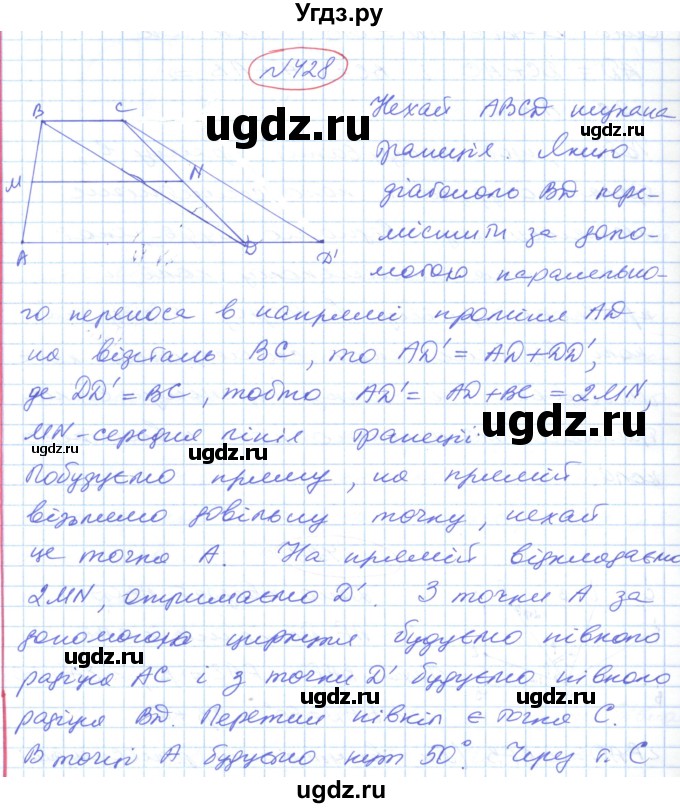 Угдз.ру
N428
B C
M N
A D D'
Нехай ABCD шукана
трапеція. Якщо
діагональ BD пере-
містити за допо-
могою паралельно-
го переноса в напрямі променя AD
на відстань BC, то AD' = AD+DD',
де DD' = BC, тобто AD' = AD+BC = 2MN,
MN-середня лінія трапеції.
Побудуємо пряму, на прямій
візьмемо довільну точку, нехай
це точка A. На прямій відкладаємо
2MN, отримаємо D'. З точки A за
допомогою циркуля будуємо півкола
радіуса AC і з точки D' будуємо півкола
радіуса BD. Перетин півкіл є точка C.
В точці A будуємо кут 50°. Через т. C
ugdz.ru
ugdz.ru
ugdz.ru
ugdz.ru
ugdz.ru
ugdz.ru
ugdz.ru
ugdz.ru
ugdz.ru
ugdz.ru
ugdz.ru